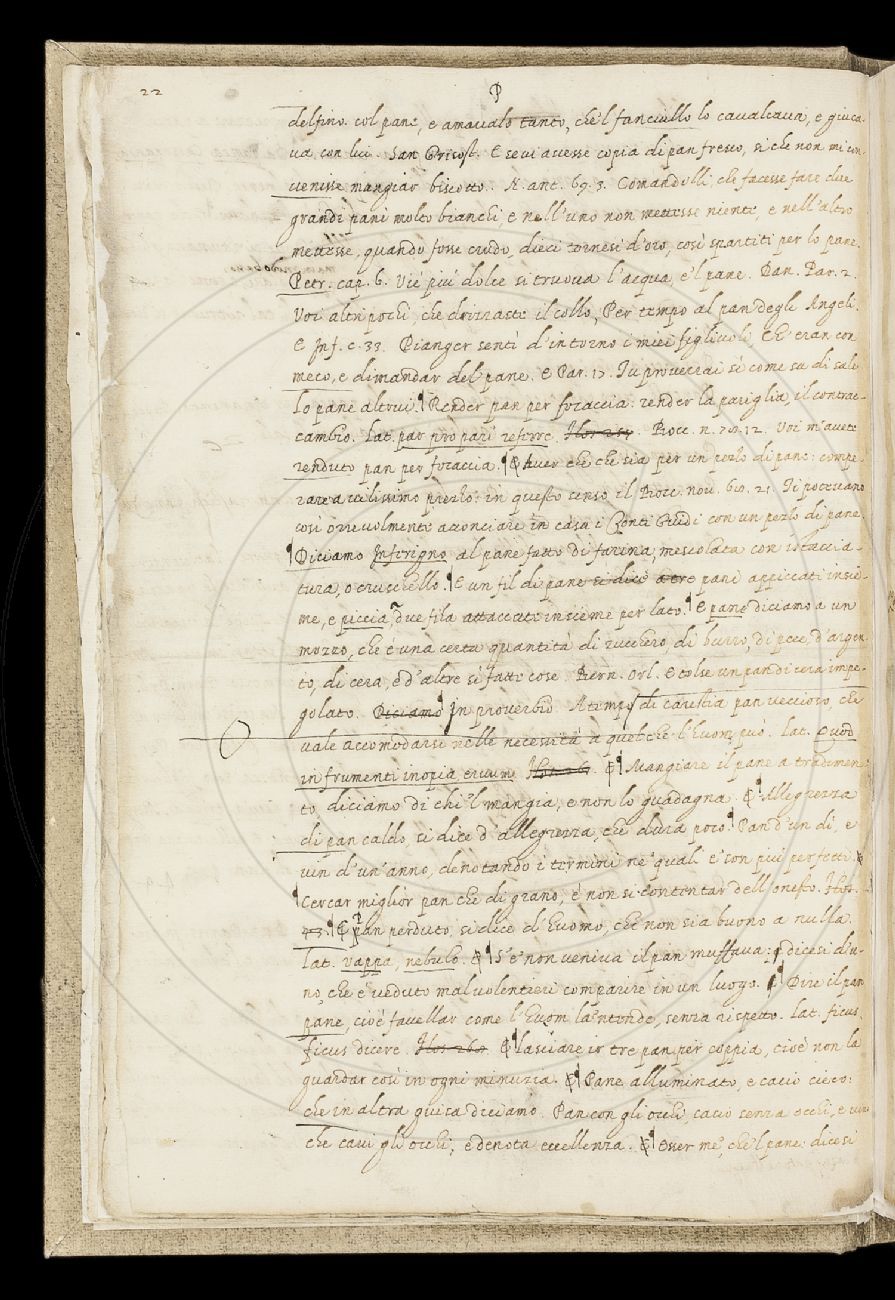 22
P
delfino. col pane, e amavalo tanto, che'l fanciullo lo cavalcava, e giuca-
va con lui. San Gricost. E se vi avesse copia di pan fresco, sì che non mi con-
venisse mangiar biscotto. N. ant. 69. 3. Comandolli, che facesse fare due
grandi pani molto bianchi, e nell'uno non mettesse niente, e nell'altro
mettesse, quando fosse crudo, dieci tornesi d'oro, così spartiti per lo pane.
Petr. cap. 6. Vie più dolce si truova l'acqua, e'l pane. Dan. Par. 2.
Voi altri pochi, che drizzaste il collo, Per tempo al pan degli Angeli.
E Inf. c. 33. Pianger sentì d'intorno i miei figliuoli, Ch'eran con
meco, e dimandar del pane. E Par. 17. Tu proverrai sì come sa di sale
lo pane altrui. Render pan per focaccia: render la pariglia, il contrac-
cambio. Lat. par pro pari referre. Bocc. n. 78. 12. Voi m'avete
renduto pan per focaccia. Aver che che sia per un pezzo di pane: compe-
rare a vilissimo prezzo: in questo senso il Bocc. nov. 60. 21. Ti potevano
così orrevolmente acconciare in casa i Conti Guidi con un pezzo di pane.
Diciamo Inferigno al pane fatto di farina, mescolata con istaccia-
tura, o cruschello. E un fil di pane si dice a tre pani appiccati insie-
me, e piccia, due fila attaccate insieme per lato. E pane diciamo a un
mozzo, che è una certa quantità di zucchero, di burro, di pece, d'argen-
to, di cera, e d'altre sì fatte cose. Bern. Orl. E tolse un pan di cera impe-
golato. Diciamo in proverbio. A tempo di carestia pan veccioso, che
vale accomodarsi nelle necessità a quel che l'huom può. Lat. Quod
in frumenti inopia, ervum. Mangiare il pane a tradimen-
to, diciamo di chi'l mangia, e non lo guadagna. Allegrezza
di pan caldo, si dice d'allegrezza, che dura poco. Pan d'un dì, e
vin d'un'anno, denotando i termini ne' quali e' son più perfetti.
Cercar miglior pan che di grano, è non si contentar dell'onesto.
pan perduto, si dice d'Huomo, che non sia buono a nulla.
Lat. vappa, nebulo. S'e' non veniva il pan muffava: dicesi d'u-
no, che è veduto mal volentieri comparire in un luogo. Dire il pan
pane, cioè favellar come l'huom la'ntende, senza rispetto. Lat. ficus
ficus dicere. Lasciare ir tre pan per coppia, cioè non la
guardar così in ogni minuzia. Pane alluminato, e cacio cieco:
che in altra guisa diciamo. Pan con gli occhi, cacio senza occhi, e vino
che cavi gli occhi, e denota eccellenza. Esser me', che'l pane: dicesi